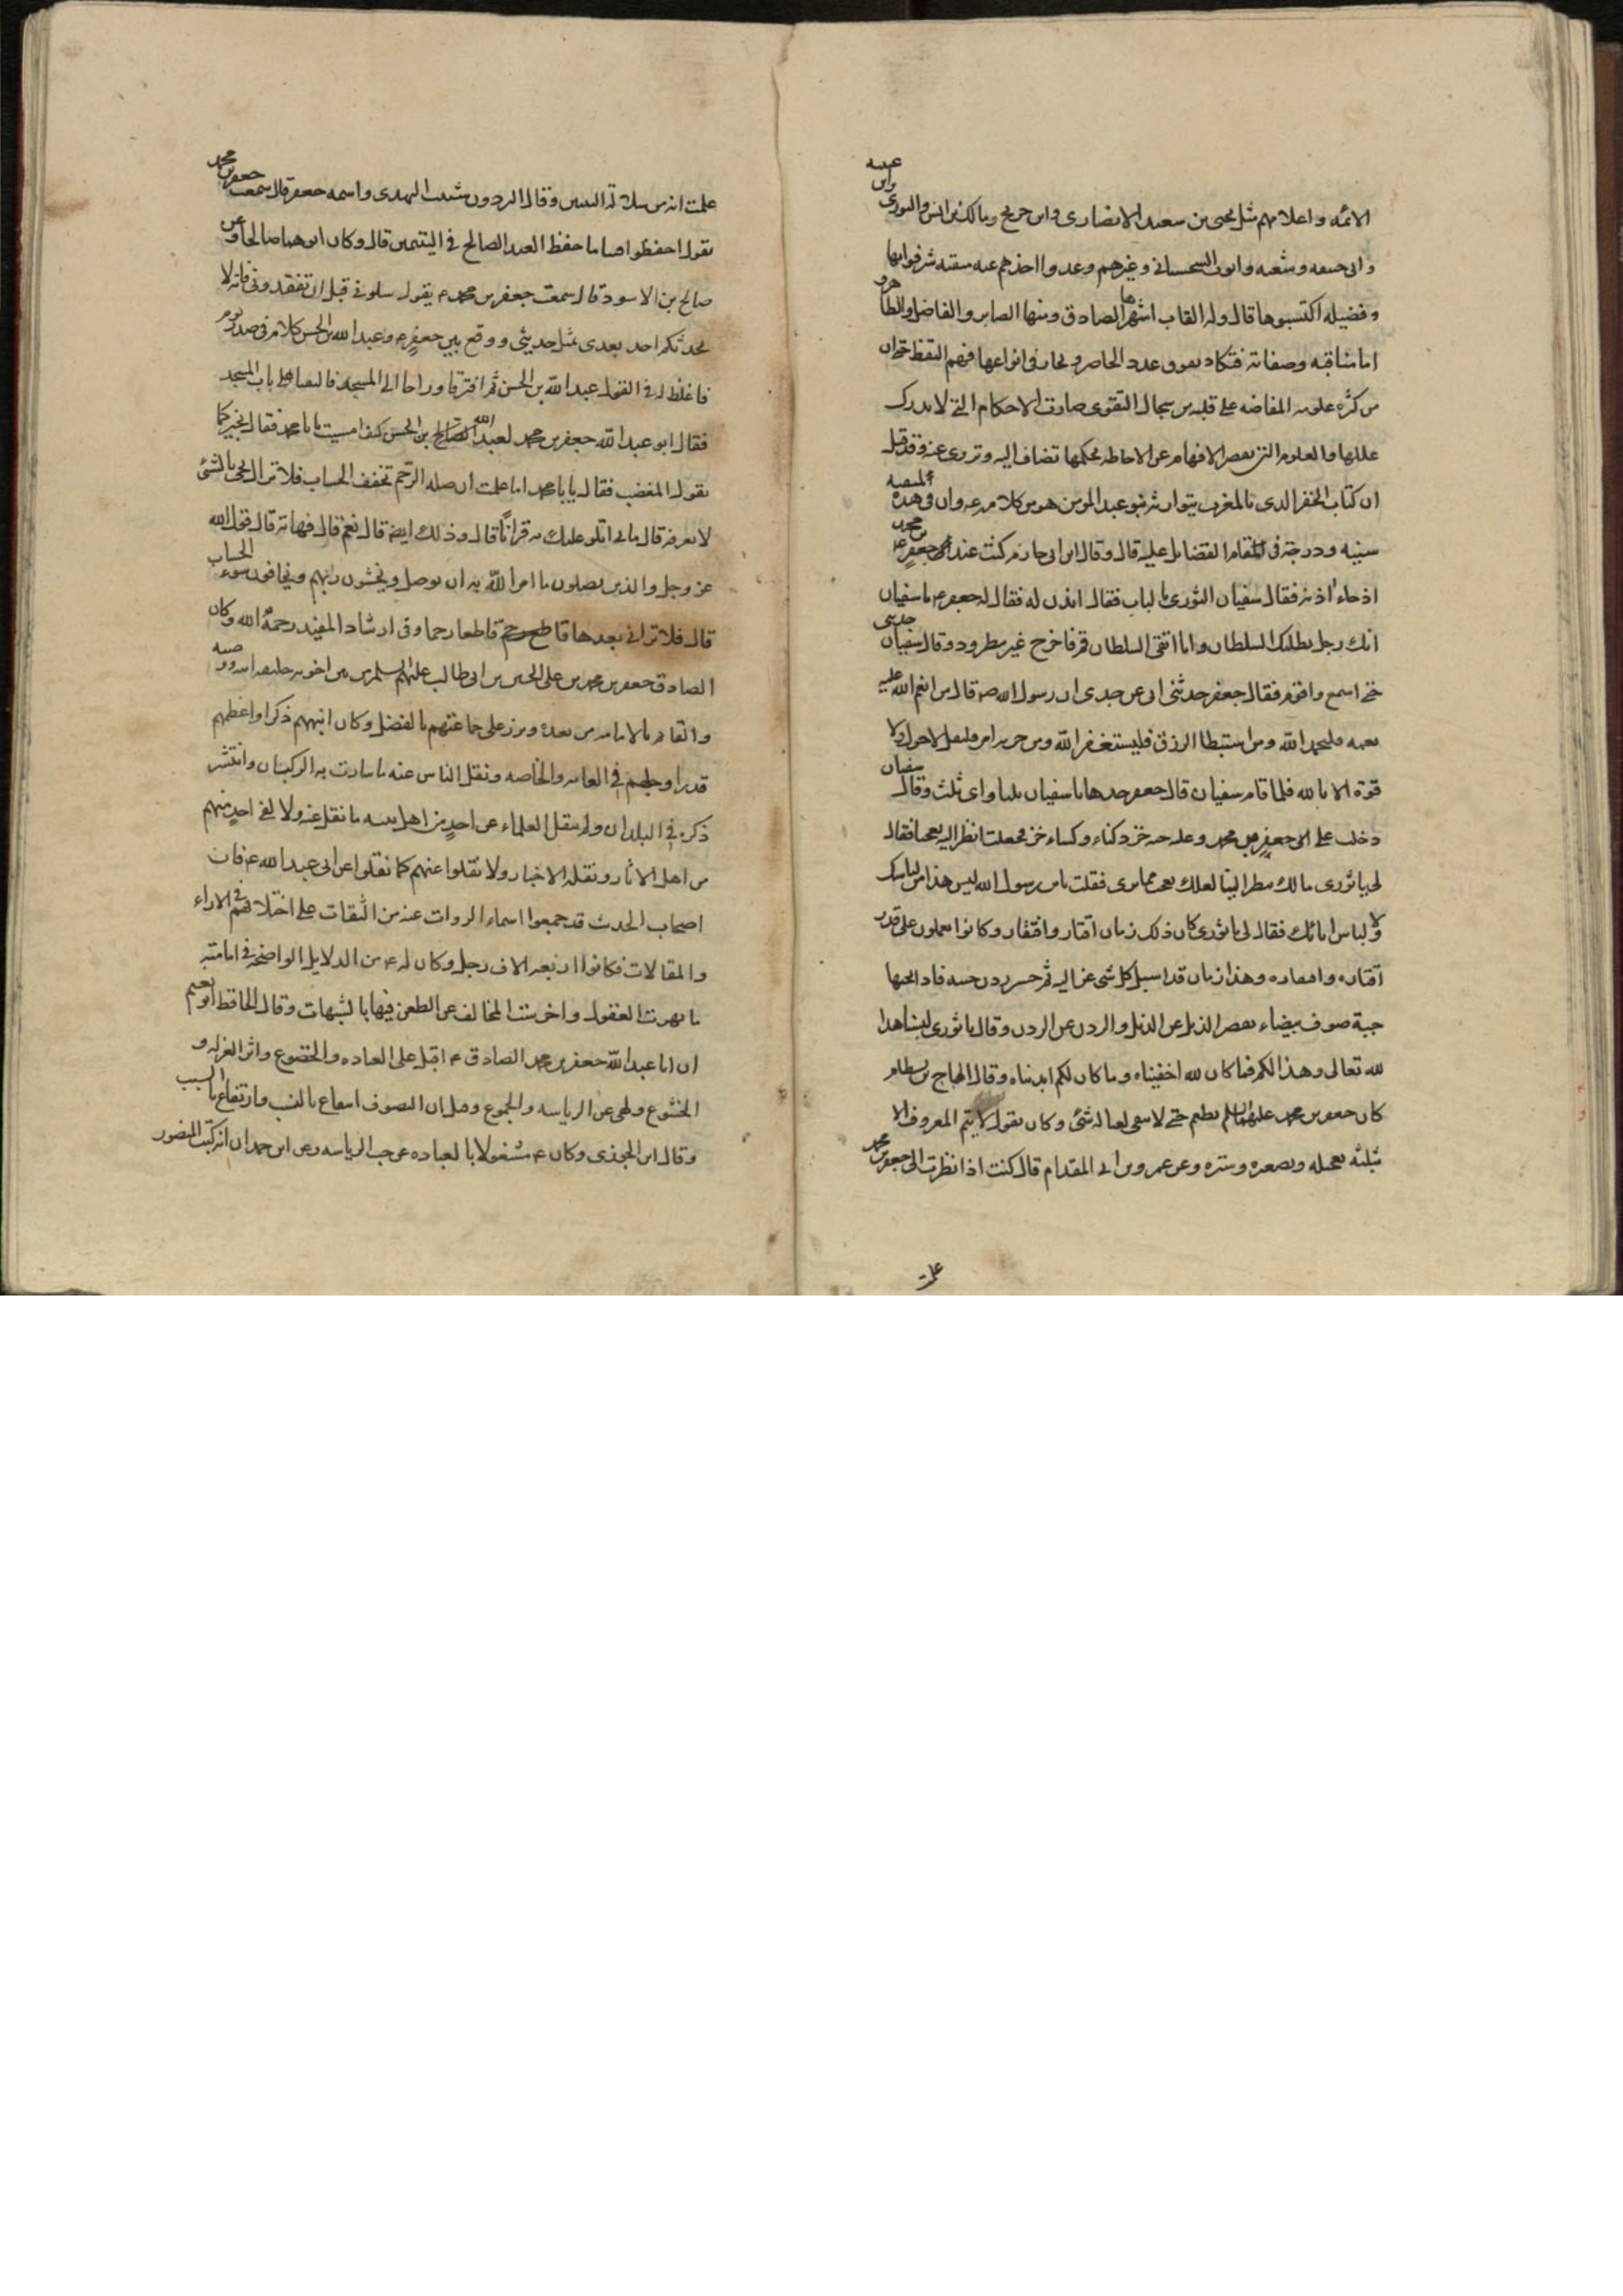 الائمه و اعلامهم مثل يحيى بن سعيد الانصارى و ابن جريح و مالك بن انس والثورى وابن عيينه
و ابى حنيفه و شعبه و ايوب السجستانى و غيرهم وعدوا اخذهم عنه منقبه شرفوا بها
و فضيله اكتسبوها قال وله القاب اشهرها الصادق ومنها الصابر و الفاضل والطاهر
اما مناقبه وصفاته فتكاد تفوق عدد الحاصر و يحار فى انواعها فهم اليقظ حتى ان
من كثرة علومه المفاضه على قلبه من سجال التقوى صارت الاحكام التى لا يدرك
عللها والعلوم التى يقصر الافهام عن الاحاطه بحكمها تضاف اليه وتروى عنه وقد قيل
ان كتاب الجفر الذى بالمغرب يتوارثه بنو عبد المومن هو من كلامه ع وان فى هذه المنقبه
سنيه و درجة فى مقام الفضايل عليه قال و قال ابن ابى حازم كنت عند جعفر بن محمد ع
اذ جاء اذنه فقال سفيان الثورى بالباب فقال ائذن له فقال له جعفر ع يا سفيان
انك رجل يطلبك السلطان وانا اتقى السلطان قم فاخرج غير مطرود وقال سفيان حدثنى
حتى اسمع واقوم فقال جعفر حدثنى ابى عن جدى ان رسول الله ص قال من انعم الله عليه
نعمه فليحمد الله ومن استبطا الرزق فليستغفر الله ومن حزبه امر فليقل لا حول ولا
قوة الا بالله فلما قام سفيان قال جعفر خذها يا سفيان ثلثا واى ثلث وقال سفيان
دخلت على جعفر بن محمد وعليه جبه خز دكناء وكساء خز فجعلت انظر اليه تعجبا فقال
لى يا ثورى مالك تنظر الينا لعلك تعجب مما ترى فقلت يابن رسول الله ليس هذا من لباسك
ولا لباس ابائك فقال لى يا ثورى كان ذلك زمان اقتار وافتقار وكانوا يعملون على قدر
اقتاره وافتقاره وهذا زمان قد اسبل كل شى عزاليه ثم حسر ردن جبته فاذا تحتها
جبة صوف بيضاء يقصر الذيل عن الذيل والردن عن الردن وقال يا ثورى لبسنا هذا
لله تعالى وهذا لكم فما كان لله اخفيناه وما كان لكم ابديناه وقال الهاج بن بسطام
كان جعفر بن محمد عليهما السلم يطعم حتى لا يبقى لعياله شئ وكان يقول لا يتم المعروف الا
بثلثه تعجيله وتصغيره وستره وعن عمرو بن ابى المقدام قال كنت اذا نظرت الى جعفر بن محمد
علمت
علمت انه من سلالة النبيين وقال البردون شبيب النهدى واسمه جعفر قال سمعت جعفر بن محمد
يقول احفظوا فينا ما حفظ العبد الصالح فى اليتيمين قال وكان ابوهما صالحا وعن
صالح بن الاسود قال سمعت جعفر بن محمد ع يقول سلونى قبل ان تفقدونى فانه لا
يحدثكم احد بعدى بمثل حديثى ووقع بين جعفر ع وعبد الله بن الحسن كلام فى صدر يوم
فاغلظ له فى القول عبد الله بن الحسن ثم افترقا وراحا الى المسجد فالتقيا على باب المسجد
فقال ابو عبد الله جعفر بن محمد لعبد الله بن الحسن كيف امسيت يابا محمد فقال بخير كما
يقول المغضب فقال يابا محمد اما علمت ان صله الرحم تخفف الحساب فلا تزال تجئ بالشئ
لا نعرفه قال فانى اتلو عليك به قرانا قال وذلك ايضا قال نعم قال فهاته قال قول الله
عز وجل والذين يصلون ما امر الله به ان يوصل ويخشون ربهم ويخافون سوء الحساب
قال فلا ترانى بعدها قاطعا رحما وفى ارشاد المفيد رحمه الله وكان
الصادق جعفر بن محمد بن على الحسين بن ابى طالب عليهم السلم من بين اخوته خليفه ابيه ووصيه
والقائم بالامامه من بعده وبرز على جماعتهم بالفضل وكان انبههم ذكرا واعظمهم
قدرا واجلهم فى العامه والخاصه ونقل الناس عنه ما سارت به الركبان وانتشر
ذكره فى البلدان ولم ينقل العلماء عن احد من اهل بيته ما نقل عنه ولا لقى احد منهم
من اهل الاثار ونقله الاخبار ولا نقلوا عنهم كما نقلوا عن ابى عبد الله ع فان
اصحاب الحديث قد جمعوا اسماء الروات عنه من الثقات على اختلافهم فى الاراء
والمقالات فكانوا اربعه الاف رجل وكان له ع من الدلايل الواضحة فى امامته
ما بهرت العقول واخرست المخالف عن الطعن فيها بالشبهات وقال الحافظ ابو نعيم
ان ابا عبد الله جعفر بن محمد الصادق ع اقبل على العباده والخضوع واثر العزله و
الخشوع ولهى عن الرياسه والجموع وقيل ان التصوف انتفاع بالنسب وارتفاع بالسبب
وقال ابن الجوزى وكان ع مشغولا بالعباده عن حب الرياسه وعن ابن حمدان انه كتب المنصور